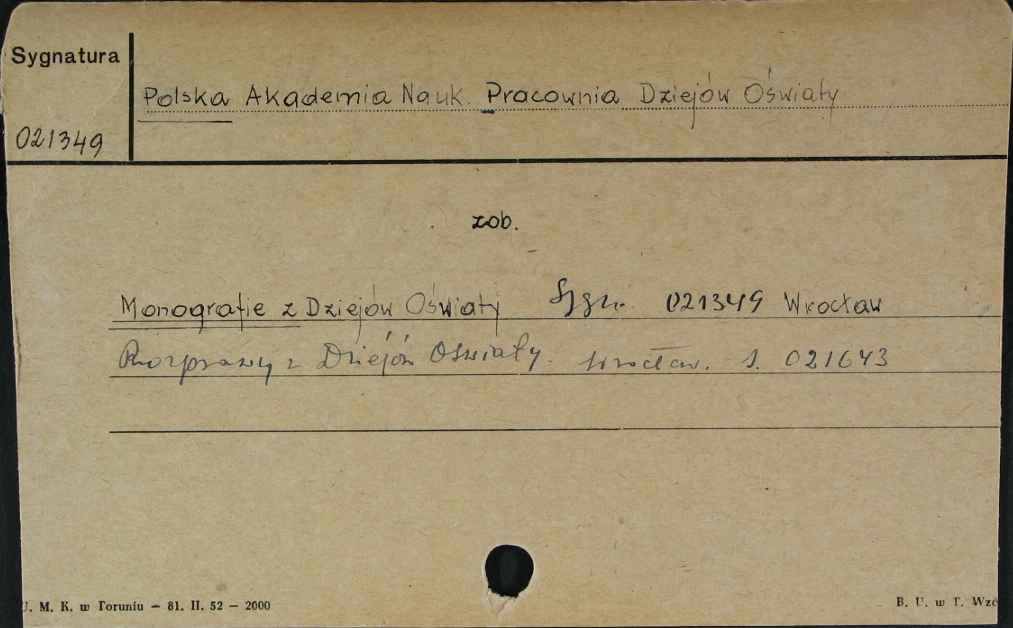 Sygnatura
Polska Akademia Nauk. Pracownia Dziejów Oświaty
021349
zob.
Monografie z Dziejów Oświaty Sygn. 021349 Wrocław
Rozprawy z Dziejów Oświaty. Wrocław. S. 021643
U. M. K. w Toruniu — 81. II. 52 — 2000
B. U. w T. Wzó